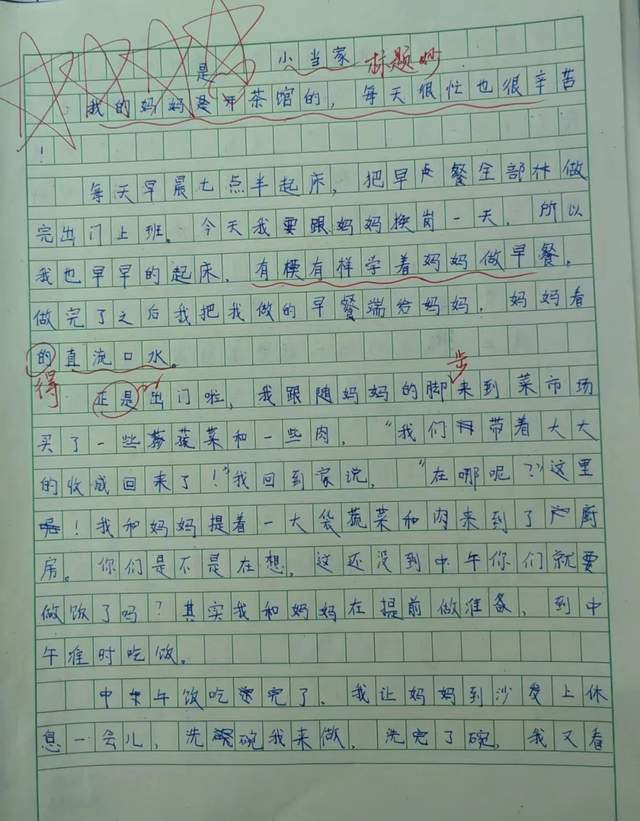 小当家 标题妙
是
我的妈妈是开茶馆的，每天很忙也很辛苦
！
每天早晨七点半起床，把早点餐全部做
完出门上班。今天我要跟妈妈换岗一天，所以
我也早早的起床，有模有样学着妈妈做早餐，
做完了之后我把我做的早餐端给妈妈，妈妈看
的直流口水。
得 正是出门啦，我跟随妈妈的脚步来到菜市场
买了一些蔬菜和一些肉，“我们带着大大
的收成回来了！”我回到家说，“在哪呢？”这里
呢！我和妈妈提着一大袋蔬菜和肉来到了厨
房。你们是不是在想，这还没到中午你们就要
做饭了吗？其实我和妈妈在提前做准备，到中
午准时吃饭。
中午饭吃完了，我让妈妈到沙发上休
息一会儿，洗碗我来做，洗完了碗，我又看